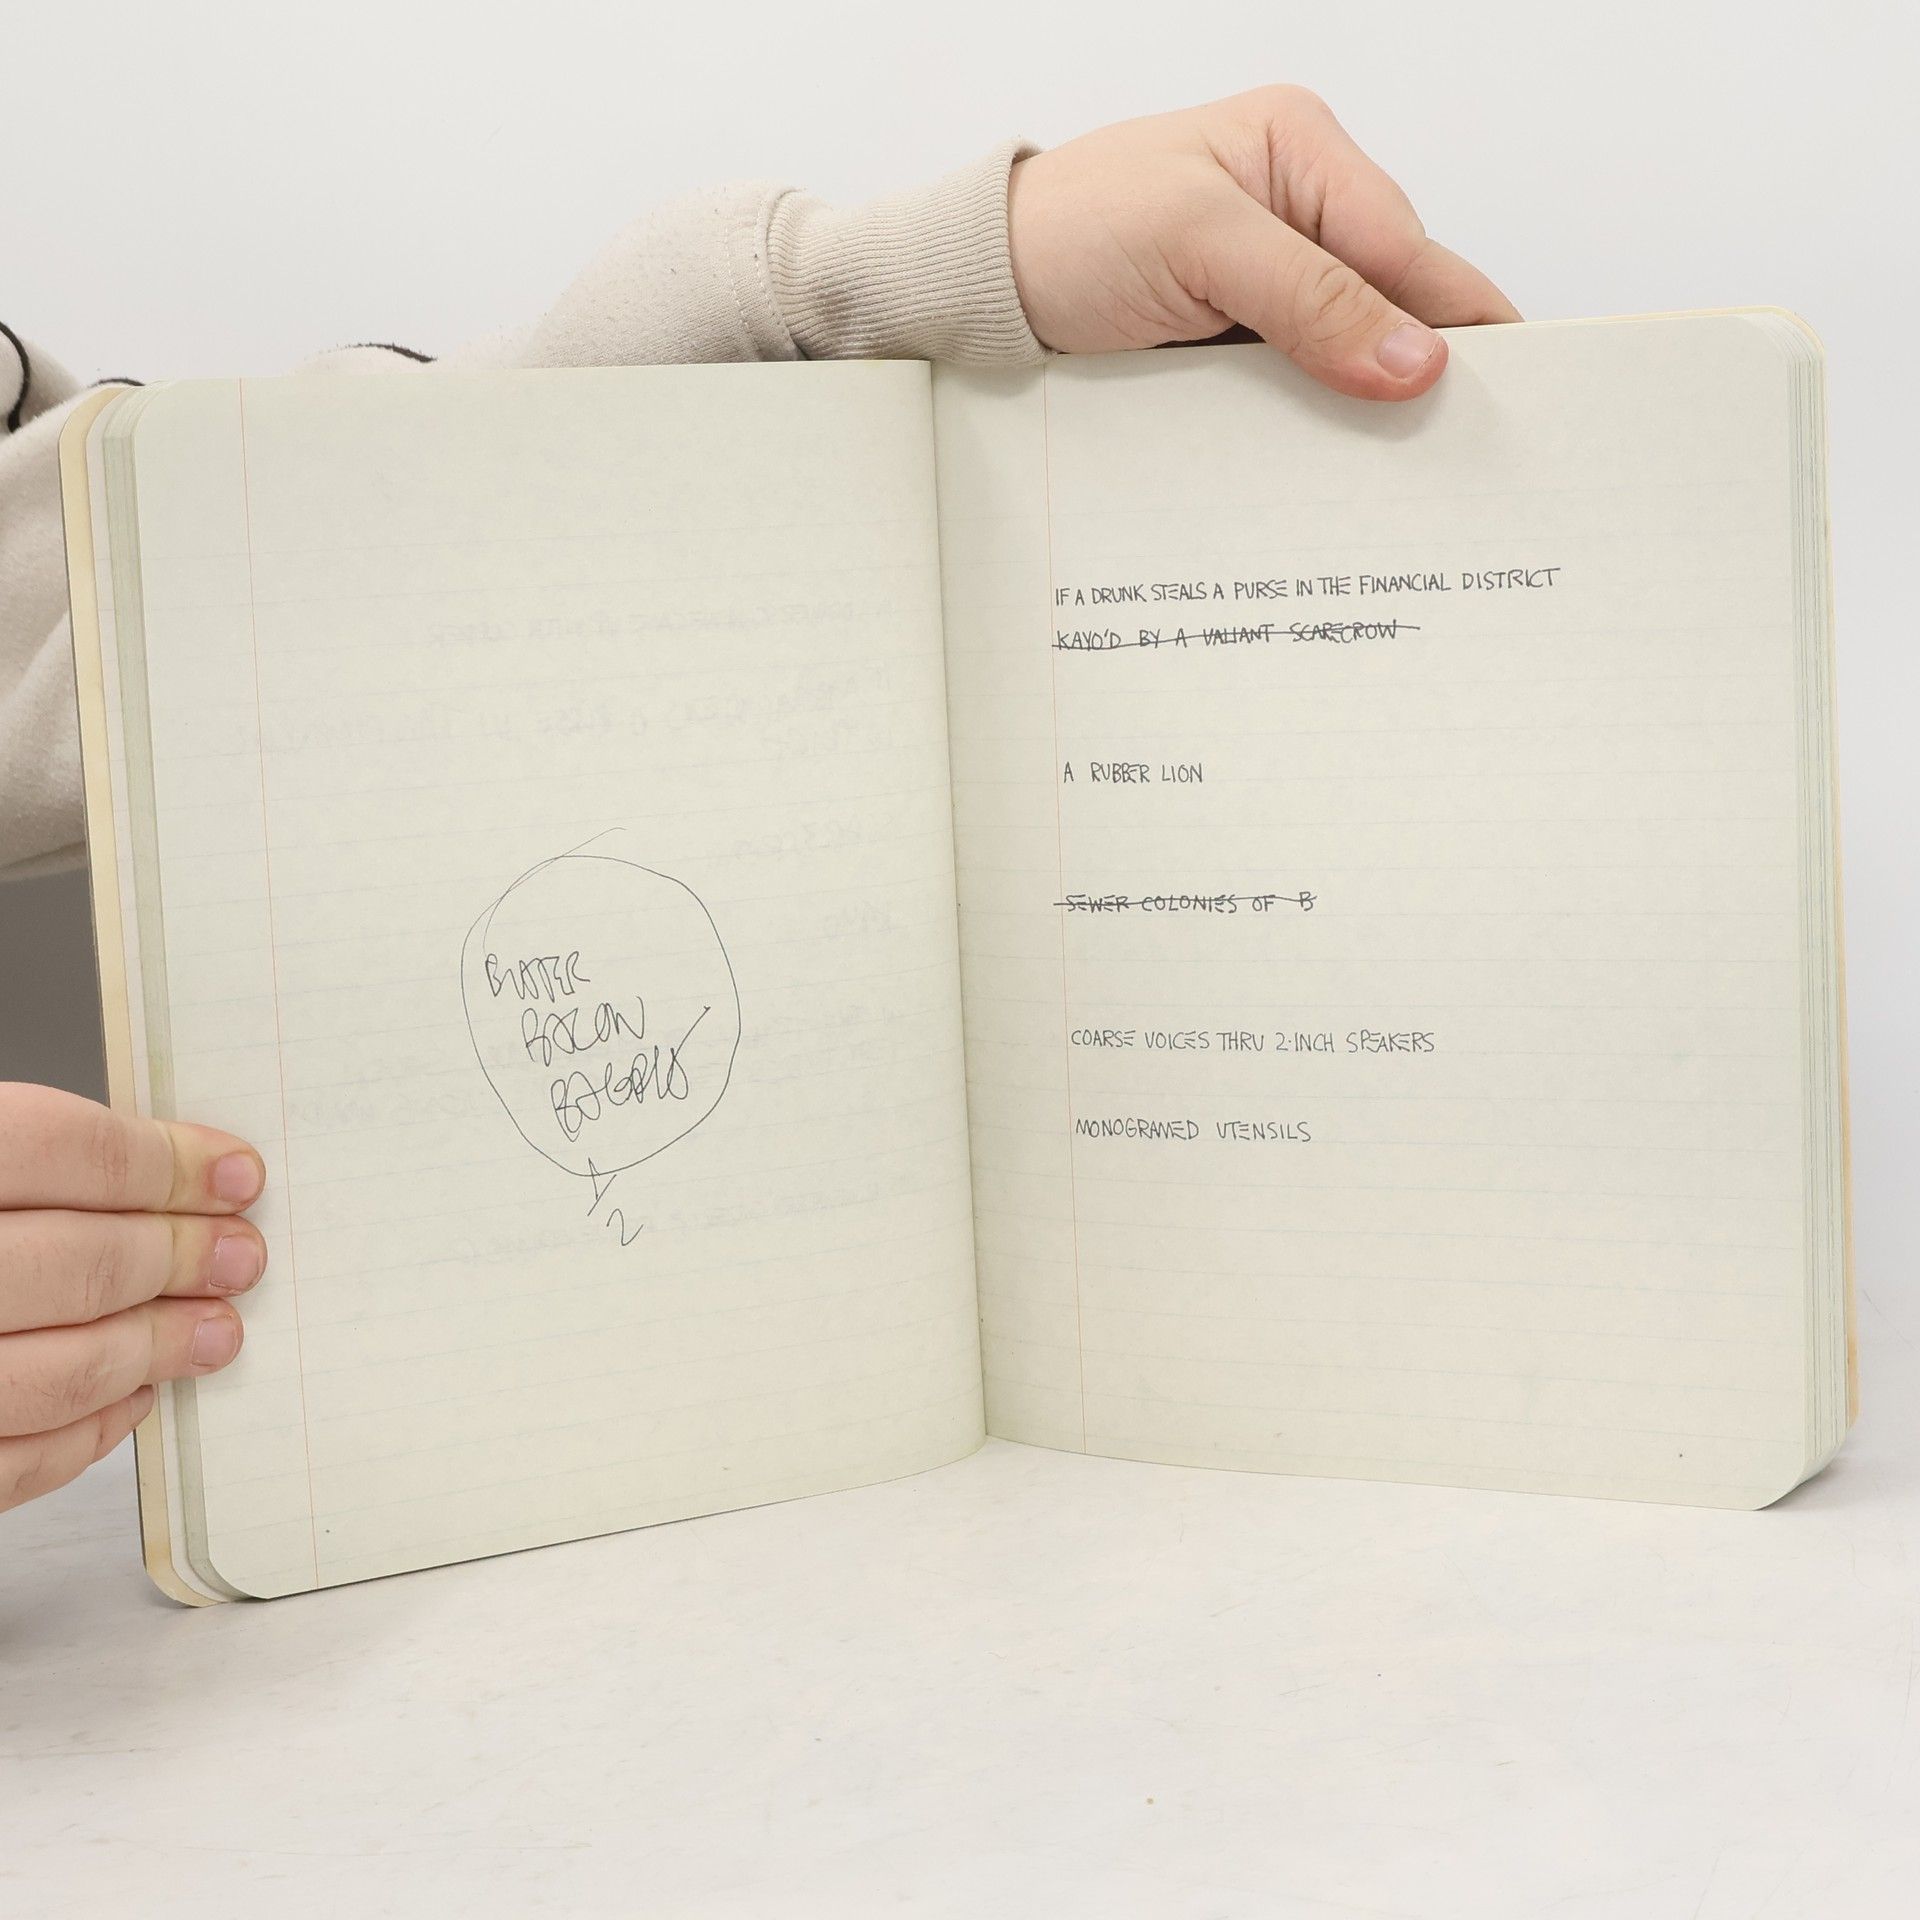 BUTTER
BACON
BAGELS
1/2
IF A DRUNK STEALS A PURSE IN THE FINANCIAL DISTRICT
KAYO'D BY A VALIANT SCARECROW
A RUBBER LION
SEWER COLONIES OF B
COARSE VOICES THRU 2-INCH SPEAKERS
MONOGRAMED UTENSILS